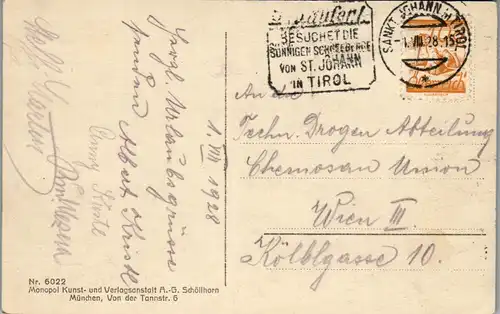 BESUCHET DIE
SONNIGEN SCHNEEBERGE
VON ST. JOHANN
IN TIROL
SANKT JOHANN in TIROL
1.VIII.28-15
1. VIII 1928
Herzl. Urlaubsgrüsse
senden Albert Kastl
Kastl
An die
Techn. Drogen Abteilung
Chemosan Union
Wien III.
Kölblgasse 10.
Nr. 6022
Monopol Kunst- und Verlagsanstalt A.-G. Schöllhorn
München, Von der Tannstr. 6